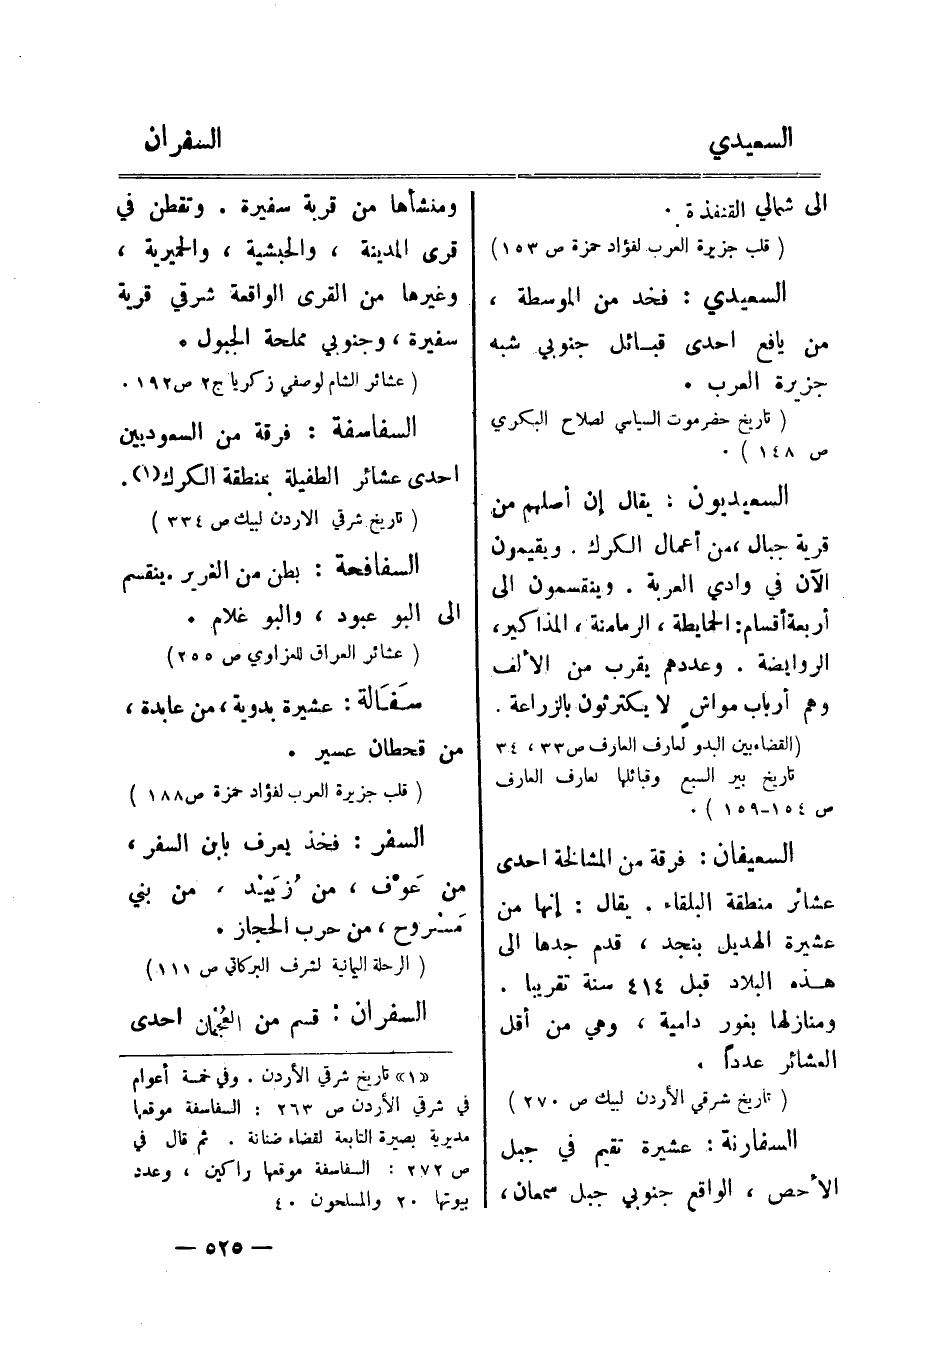 السعيدي
السفران
الى شمالي القنفذة .
( قلب جزيرة العرب لفؤاد حمزة ص ١٥٣)
السعيدي : فخد من الموسطة ،
من يافع احدى قبائل جنوبي شبه
جزيرة العرب .
( تاريخ حضرموت السياسي لصلاح البكري
ص ١٤٨ ) .
السعيديون : يقال إن أصلهم من
قرية جبال ،من أعمال الكرك . ويقيمون
الآن في وادي العربة . وينقسمون الى
أربعة أقسام: الحمايطة ، الرمامنة ، المذاكير،
الروايضة . وعددهم يقرب من الألف
وهم أرباب مواشٍ لا يكترثون بالزراعة .
(القضاء بين البدو لعارف العارف ص٣٣ ، ٣٤
تاريخ بير السبع وقبائلها لعارف العارف
ص ١٥٤-١٥٩ ) .
السعيفان : فرقة من المشالخة احدى
عشائر منطقة البلقاء . يقال : إنها من
عشيرة الهديل بنجد ، قدم جدها الى
هذه البلاد قبل ٤١٤ سنة تقريبا .
ومنازلها بغور دامية ، وهي من أقل
العشائر عدداً .
( تاريخ شرقي الأردن لبيك ص ٢٧٠ )
السفارنة : عشيرة تقيم في جبل
الأحص ، الواقع جنوبي جبل سمعان ،
ومنشأها من قرية سفيرة . وتقطن في
قرى المدينة ، والحبشية ، والحميرية ،
وغيرها من القرى الواقعة شرقي قرية
سفيرة ، وجنوبي مملحة الجبول .
( عشائر الشام لوصفي زكريا ج٢ ص١٩٢ .
السفاسفة : فرقة من السعوديين
احدى عشائر الطفيلة بمنطقة الكرك(١) .
( تاريخ شرقي الاردن لبيك ص ٣٣٤ )
السفافحة : بطن من الغرير .ينقسم
الى البو عبود ، والبو غلام .
( عشائر العراق للعزاوي ص ٢٥٥)
سَفَالة : عشيرة بدوية ، من عابدة ،
من قحطان عسير .
( قلب جزيرة العرب لفؤاد حمزة ص١٨٨ )
السفر : فخذ يعرف بابن السفر ،
من عَوْف ، من زُبَيْد ، من بني
مَسْروح ، من حرب الحجاز .
( الرحلة اليمانية لشرف البركاتي ص ١١١)
السفران : قسم من العُجْمان احدى
«١» تاريخ شرقي الأردن . وفي خمسة أعوام
في شرقي الأردن ص ٢٦٣ : السفاسفة موقعها
مديرية بصيرة التابعة لقضاء ضانة . ثم قال في
ص ٢٧٢ : السفاسفة موقعها راكين ، وعدد
بيوتها ٢٠ والمسلحون ٤٠
— ٥٢٥ —